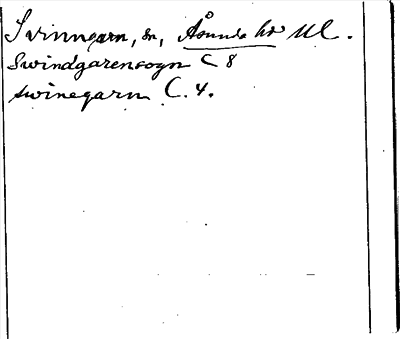 Svinnegarn, sn, Åsunda hd Ul.
Swindgarensogn C 8
swinegarn C. 4.